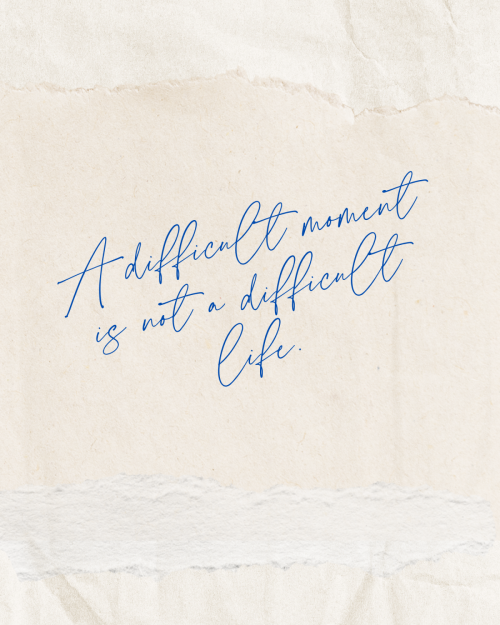 A difficult moment
is not a difficult
life.